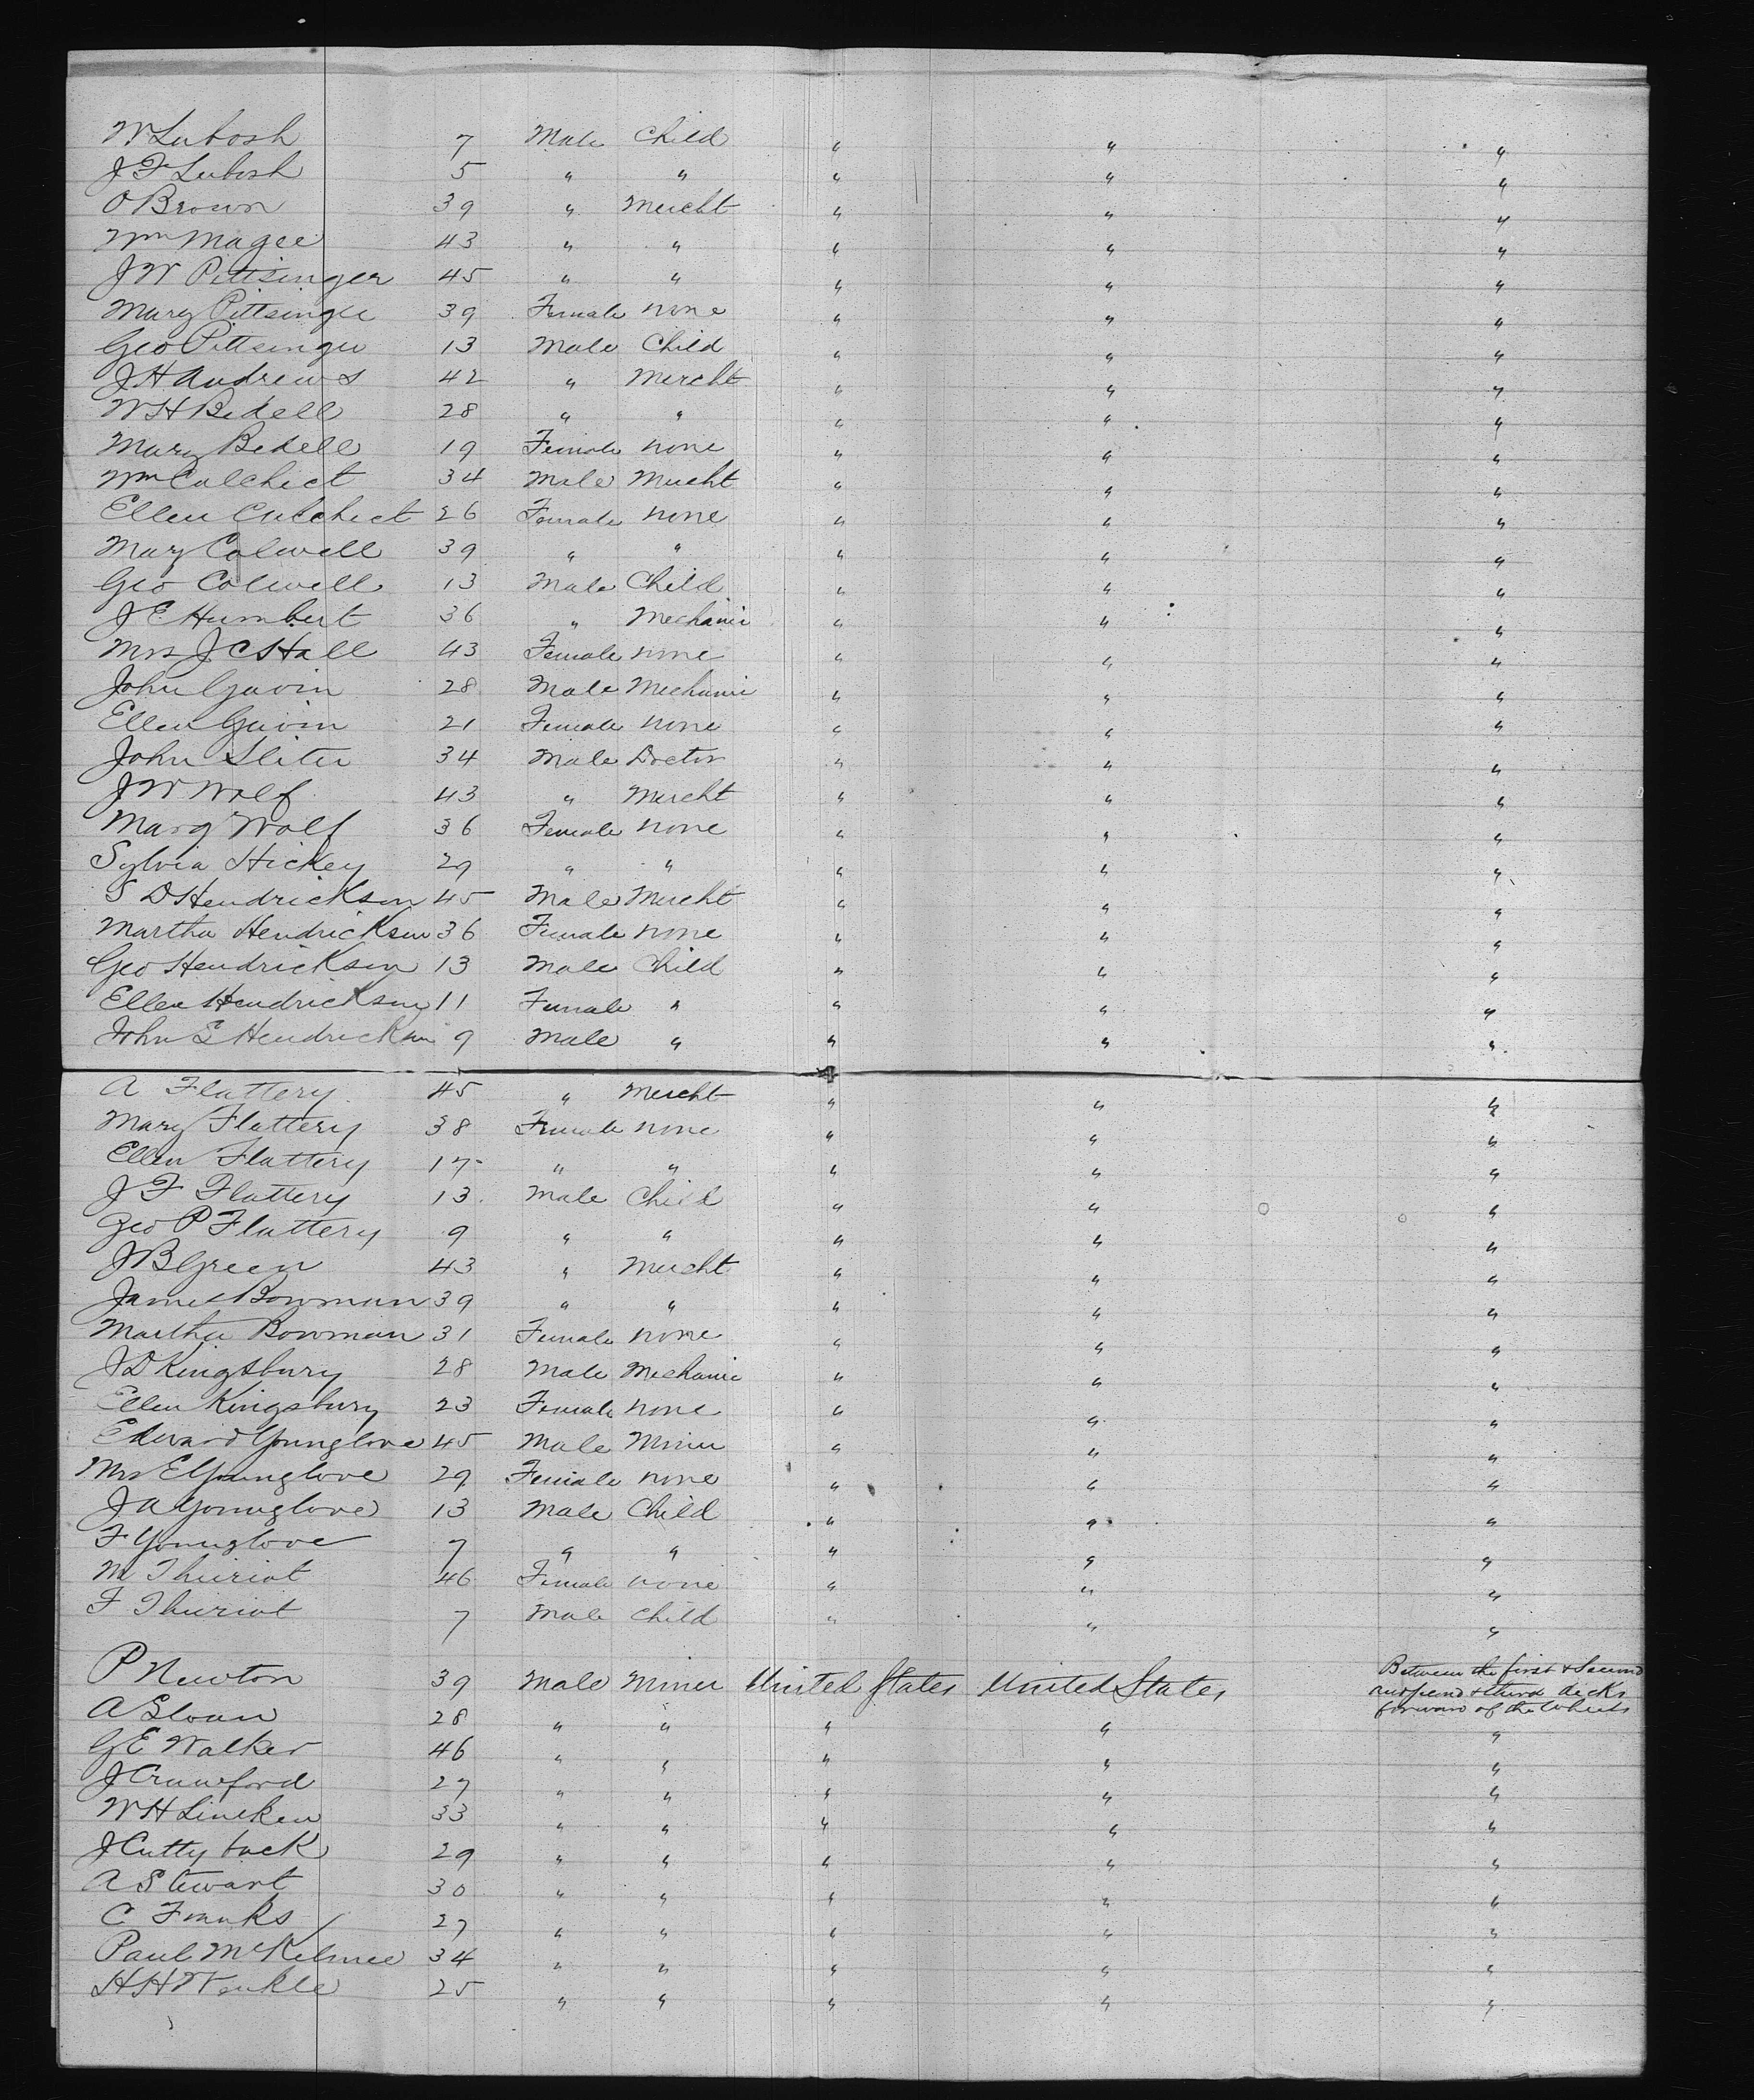 W Lubosh 7 Male Child " " "
J F Lubosh 5 " " " " "
O Brown 39 " Mercht " " "
Wm Magee 43 " " " " "
J W Pittsinger 45 " " " " "
Mary Pittsinger 39 Female none " " "
Geo Pittsinger 13 Male Child " " "
J H Andrews 42 " Mercht " " "
W H Bedell 28 " " " " "
Mary Bedell 19 Female none " " "
Wm Culchect 34 Male Mercht " " "
Ellen Culchect 26 Female none " " "
Mary Colwell 39 " " " " "
Geo Colwell 13 Male Child " " "
J E Humbert 36 " Mechanic " " "
Mrs J C Hall 43 Female none " " "
John Gavin 28 Male Mechanic " " "
Ellen Gavin 21 Female none " " "
John Sliter 34 Male Doctor " " "
J W Wolf 43 " Mercht " " "
Marg Wolf 36 Female none " " "
Sylvia Hickey 29 " " " " "
S D Hendrickson 45 Male Mercht " " "
Martha Hendrickson 36 Female none " " "
Geo Hendrickson 13 Male Child " " "
Ellen Hendrickson 11 Female " " " "
John E Hendrickson 9 Male " " " "
A Flattery 45 " Mercht " " "
Mary Flattery 38 Female none " " "
Ellen Flattery 17 " " " " "
J F Flattery 13 Male Child " " "
Geo P Flattery 9 " " " " "
J B Green 43 " Mercht " " "
James Bowman 39 " " " " "
Martha Bowman 31 Female none " " "
J D Kingsbury 28 Male Mechanic " " "
Ellen Kingsbury 23 Female none " " "
Edward Younglove 45 Male Miner " " "
Mrs E Younglove 29 Female none " " "
J A Younglove 13 Male Child " " "
F Younglove 7 " " " " "
M Thuriot 46 Female none " " "
F Thuriot 7 Male Child " " "
P Newton 39 Male Miner United States United States Between the first & Second
and & third decks
forward of the Wheels
A Sloan 28 " " " " "
G E Walker 46 " " " " "
J Crawford 27 " " " " "
W H Lineken 33 " " " " "
J Cuttyback 29 " " " " "
A Stewart 30 " " " " "
C Franks 27 " " " " "
Paul McKelmee 34 " " " " "
H H Wenkle 25 " " " " "